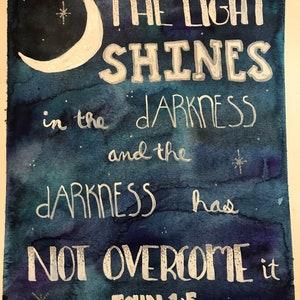 THE LIGHT
SHINES
in the dARKNESS
and the
dARKNESS has
NOT OVERCOME it
JOHN 1:5